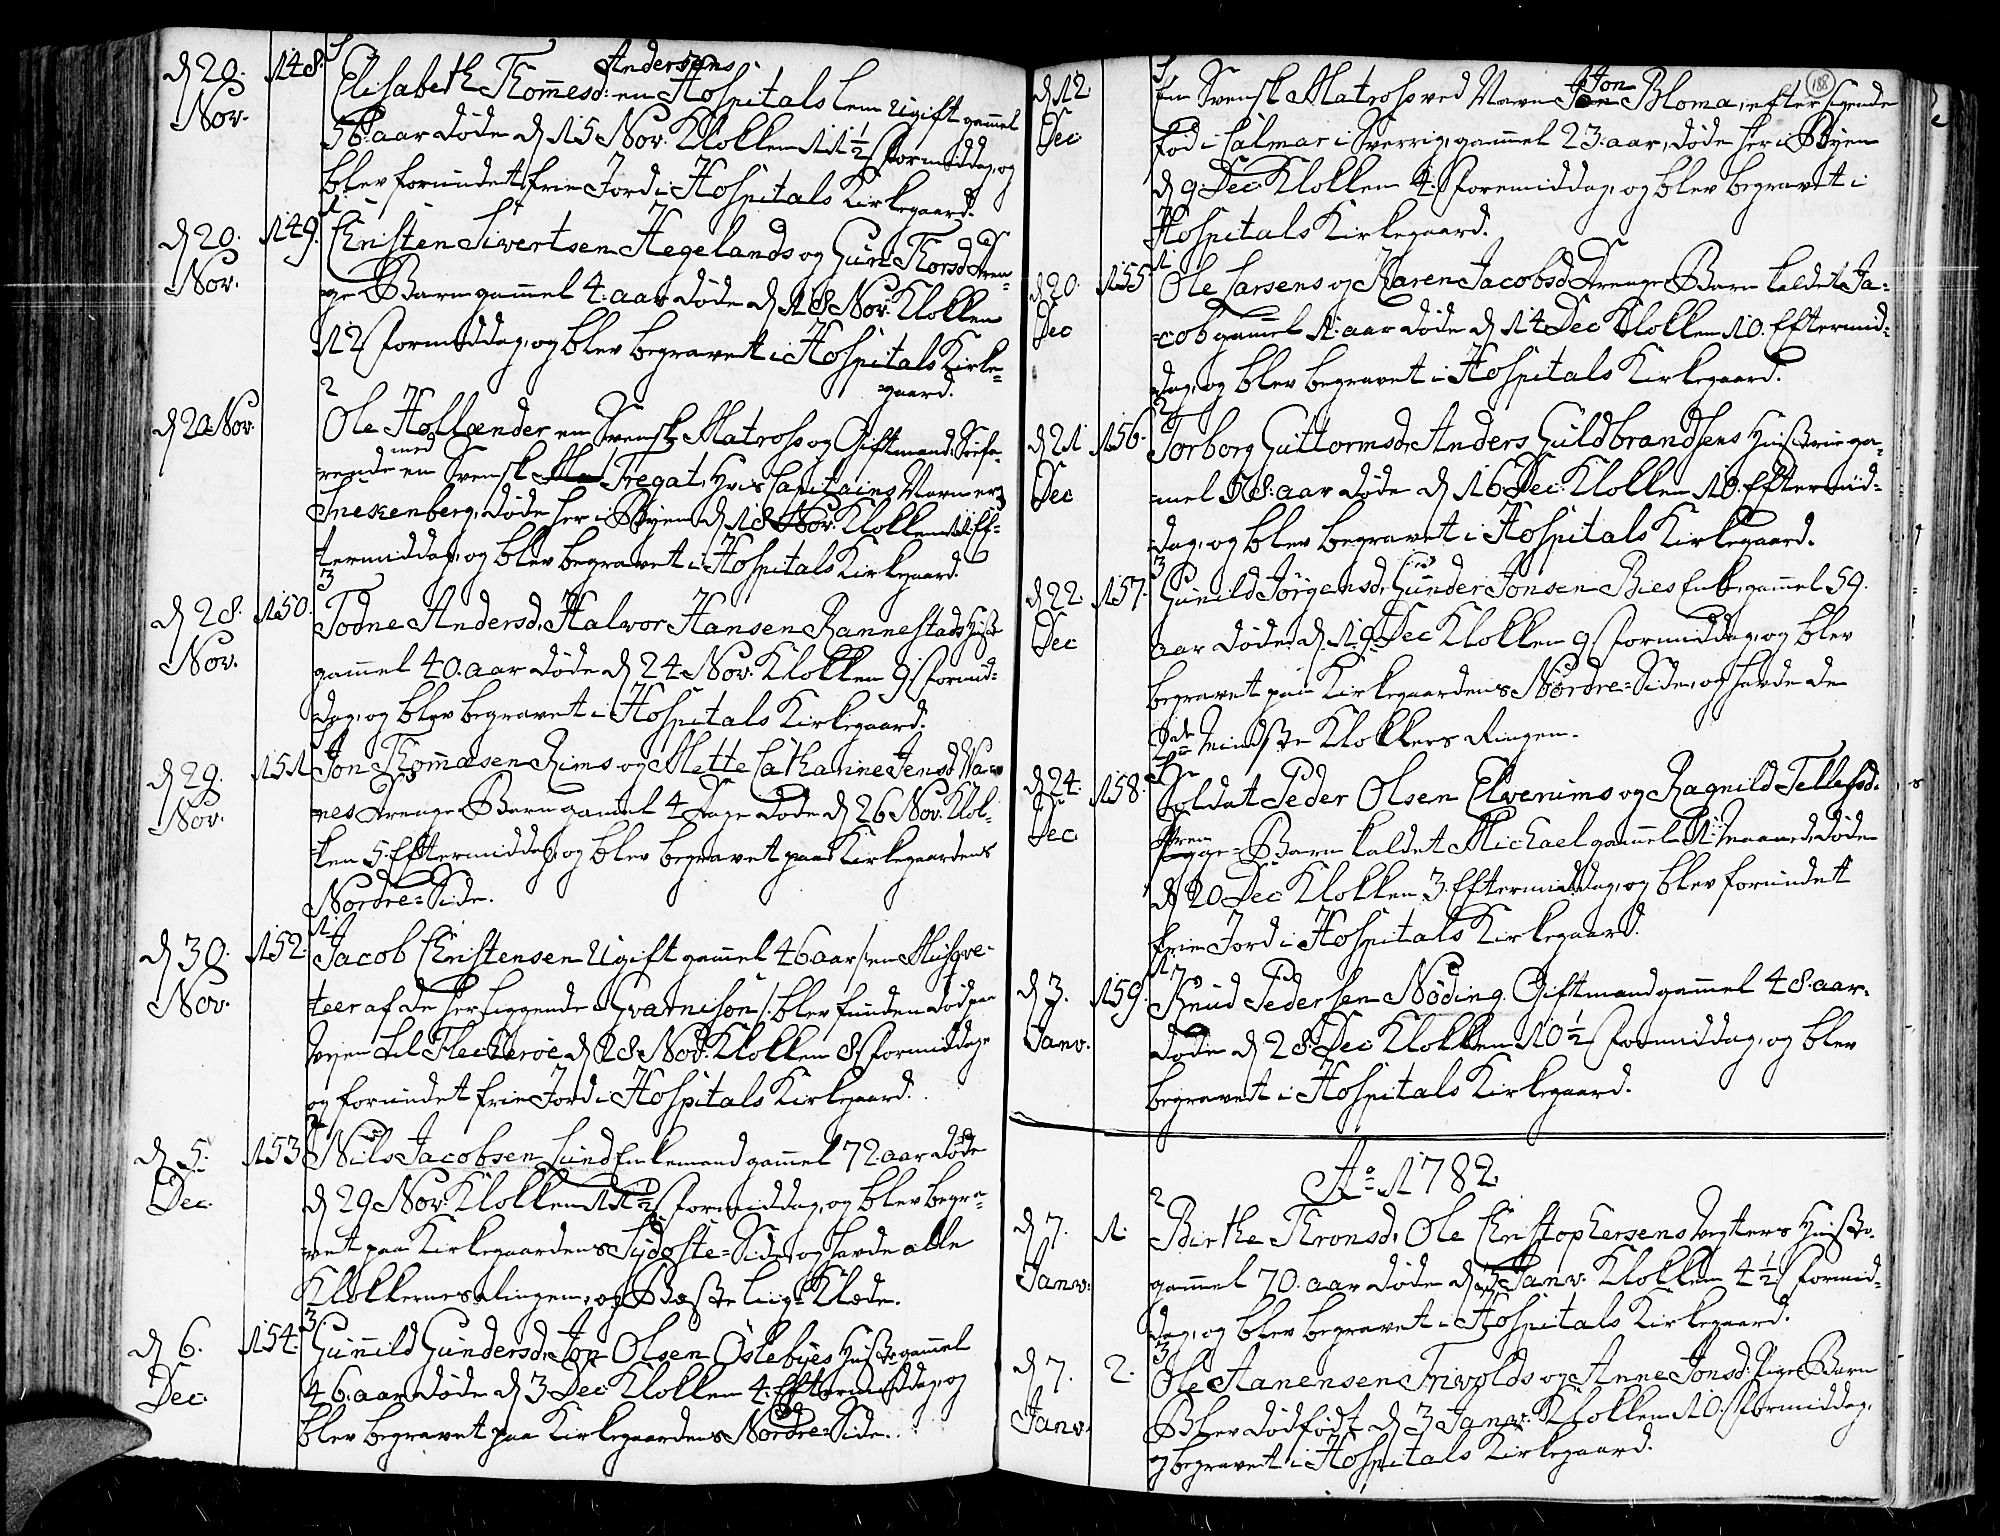 d 20. 148. Elisabeth Thomesd: en Andersens Hospitals Lem Ugift gammel
Nov. 56. aar døde d 15 Nov. Klokken 11½ Formiddag, og
blev forundet frie Jord i Hospitals Kirkegaard.
d 20. 149. Christen Sivertsen Hegelands og Guri Thorsd Dren-
Nov. ge Barn gammel 4. aar døde d 18 Nov. Klokken
12 Formiddag, og blev begravet i Hospitals Kirke-
gaard.
2
d 20 Nov. Ole Hollænder en Svensk Matroß og Giftmand, Seife-
med
rende en Svensk Fregat, Hvis Capitains Navn er
døde her i Byen d 18 Nov. Klokken 11 Ef-
termiddag, og blev begravet i Hospitals Kirkegaard.
3
d 28. 150. Todne Andersd, Halvor Hansen Rannestads Hustr
Nov. gammel 40. aar døde d 24 Nov. Klokken 9 Formid-
dag, og blev begravet i Hospitals Kirkegaard.
d 29. 151 Jon Thommasen Rims og Mette Catharine Jensd Na-
Nov. nes Drenge Barn gammel 4 Dage døde d 26 Nov. Klok-
ken 5. Eftermiddag, og blev begravet paa Kirkegaardens
Nordre-Side.
1
d 30. 152. Jacob Christensen Ugift gammel 46 aar /: en Musqve-
Nov. teer af de her liggende Gvarnison :/ blev funden død paa
Vejen til Flecherøe d 28 Nov. Klokken 8 Formiddag
og forundet frie Jord i Hospitals Kirkegaard.
d 5. 153 Nils Jacobsen Lund Enkemand gammel 72 aar døde
Dec. d 29 Nov. Klokken 11½ Formiddag, og blev begra-
vet paa Kirkegaardens Sydøste-Side, og havde alle
Klokkernes Ringen, og Beste Liig-Klæde.
3.
d 6. 154. Gunnild Gundersd, Jon Olsen Oslebyes Hustr gammel
Dec. 46. aar døde d 3 Dec Klokken 4. Eftermiddag, og
blev begravet paa Kirkegaardens Nordre-Side.
188
d 12. En Svensk Matroß ved Navn Jon Bloma, efter sigende
Dec fød i Calmar i Sverrig, gammel 23. aar, døde her i Byen
d 9 Dec. Klokken 4. Foremiddag, og blev begravet i
Hospitals Kirkegaard.
1
d 20. 155 Ole Larsens og Karen Jacobsd Drenge Barn kaldet Ja-
Dec cob gammel 1. aar døde d 14 Dec Klokken 10. Eftermid-
dag, og blev begravet i Hospitals Kirkegaard.
2
d 21 156. Torborg Guttormsd, Anders Guldbrandsens Hustrue ga-
Dec mel 58. aar døde d 16 Dec. Klokken 10. Eftermid-
dag, og blev begravet i Hospitals Kirkegaard.
3
d 22. 157. Gunild Jørgensd, Gunder Jonsen Bies Enke, gammel 59.
Dec aar døde d 19 Dec Klokken 9 Formiddag, og blev
begravet paa Kirkegaardens Nordre-Side, og havde de
mindste Klokkers Ringen.
d 24. 158. Soldat Peder Olsen Elverums og Ragnild Tellefsd.
Dec. Drenge-Barn kaldet Michael gammel 1. Maaned, døde
d 20 Dec Klokken 3. Eftermiddag, og blev forundet
frie Jord i Hospitals Kirkegaard.
1
d 3. 159. Knud Pedersen Nøding. Giftmand gammel 48. aar.
Janv. døde d 28 Dec Klokken 10½ Formiddag, og blev
begravet i Hospitals Kirkegaard.
Ao 1782.
2
d 7. 1. Birthe Thronsd, Ole Christophersens Hustr.
Janv. gammel 70. aar døde d Janv. Klokken 4½ Formid-
dag, og blev begravet i Hospitals Kirkegaard.
3
d 7. 2. Ole Aanensen Trivolds og Anne Jonsd. Pige Barn
Janv. Blev dødfødt d 3 Janv. Klokken 10. Formiddag,
og begravet i Hospitals Kirkegaard.